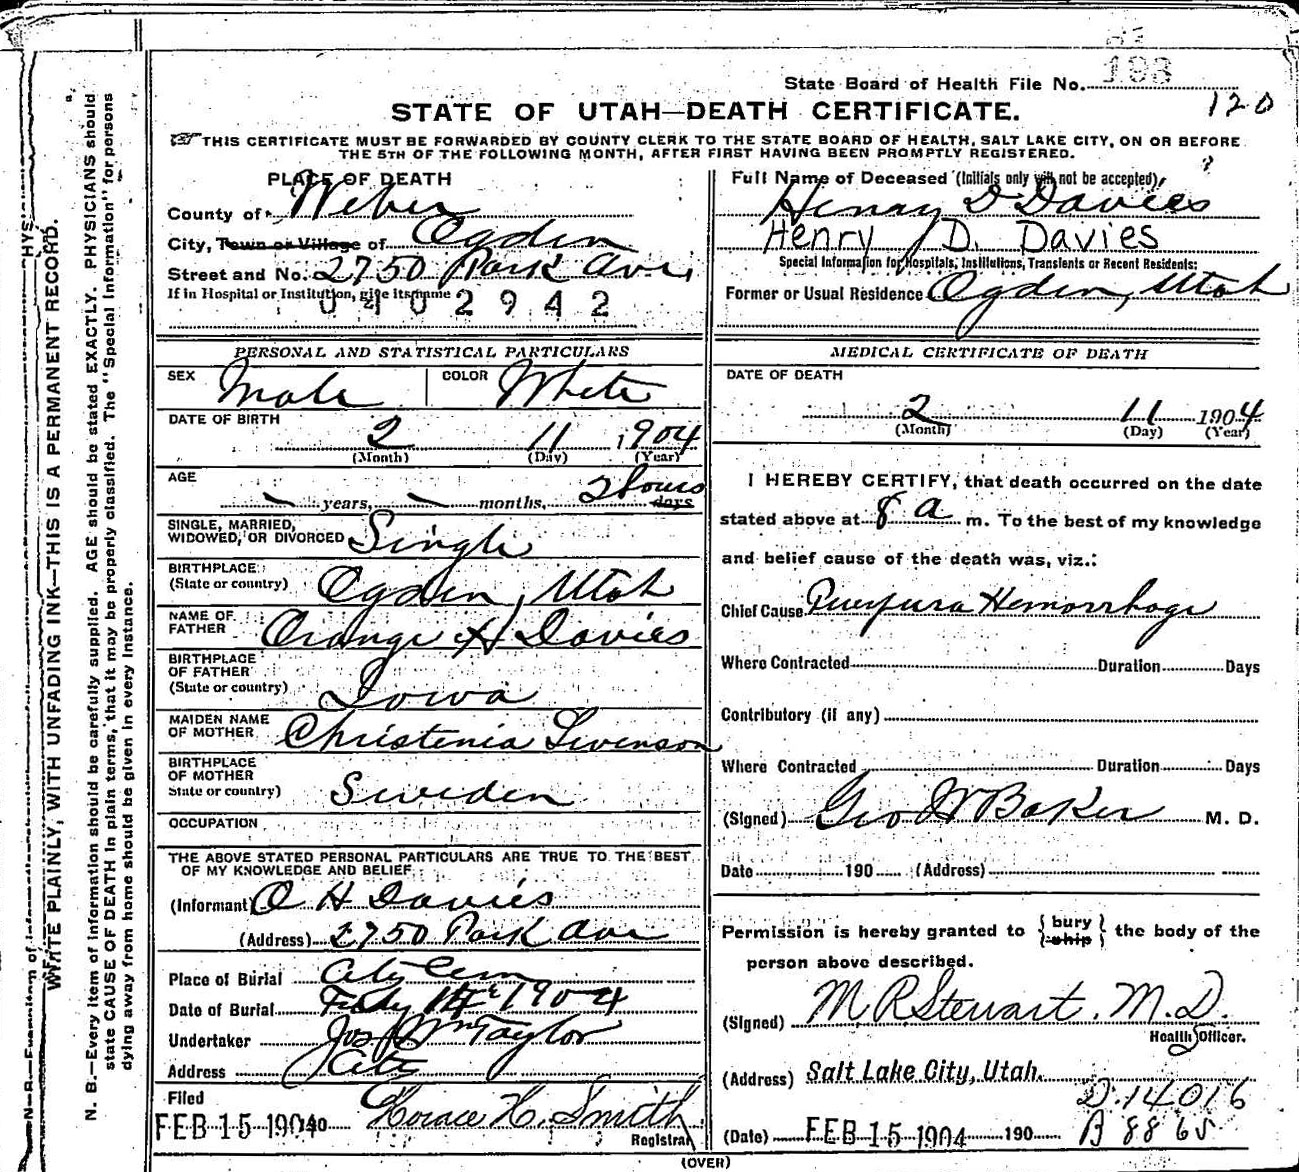 193
State Board of Health File No.
120
STATE OF UTAH—DEATH CERTIFICATE.
THIS CERTIFICATE MUST BE FORWARDED BY COUNTY CLERK TO THE STATE BOARD OF HEALTH, SALT LAKE CITY, ON OR BEFORE
THE 5TH OF THE FOLLOWING MONTH, AFTER FIRST HAVING BEEN PROMPTLY REGISTERED.
PLACE OF DEATH
County of Weber
City, Town or Village of Ogden
Street and No. 2750 Park Ave,
If in Hospital or Institution, give its name
0402942
Full Name of Deceased (Initials only will not be accepted)
Henry D Davies
Henry D. Davies
Special Information for Hospitals, Institutions, Transients or Recent Residents:
Former or Usual Residence Ogden, Utah
PERSONAL AND STATISTICAL PARTICULARS
SEX Male COLOR White
DATE OF BIRTH
2 11 1904
(Month) (Day) (Year)
AGE
years, months, 2 hours days
SINGLE, MARRIED,
WIDOWED, OR DIVORCED Single
BIRTHPLACE
(State or country) Ogden, Utah
NAME OF
FATHER Orange H Davies
BIRTHPLACE
OF FATHER
(State or country) Iowa
MAIDEN NAME
OF MOTHER Christenia Swenson
BIRTHPLACE
OF MOTHER
State or country) Sweden
OCCUPATION
THE ABOVE STATED PERSONAL PARTICULARS ARE TRUE TO THE BEST
OF MY KNOWLEDGE AND BELIEF
(Informant O H Davies
(Address) 2750 Park Ave
Place of Burial City Cem
Date of Burial 1904
Undertaker Jos Wm Taylor
Address City
Filed
FEB 15 1904 190 Horace H. Smith
Registrar
MEDICAL CERTIFICATE OF DEATH
DATE OF DEATH
2 11 1904
(Month) (Day) (Year)
I HEREBY CERTIFY, that death occurred on the date
stated above at 8 a m. To the best of my knowledge
and belief cause of the death was, viz.:
Chief Cause Purpura Hemorrhage
Where Contracted Duration Days
Contributory (if any)
Where Contracted Duration Days
(Signed) Geo W Baker M. D.
Date 190 (Address)
Permission is hereby granted to { bury } the body of the
{ ship }
person above described.
(Signed) M. R. Stewart. M.D.
Health Officer.
(Address) Salt Lake City, Utah.
D. 14016
(Date) FEB 15 1904 190 B 8865
(OVER)
WRITE PLAINLY, WITH UNFADING INK—THIS IS A PERMANENT RECORD.
N. B.—Every item of information should be carefully supplied. AGE should be stated EXACTLY. PHYSICIANS should
state CAUSE OF DEATH in plain terms, that it may be properly classified. The "Special Information" for persons
dying away from home should be given in every instance.